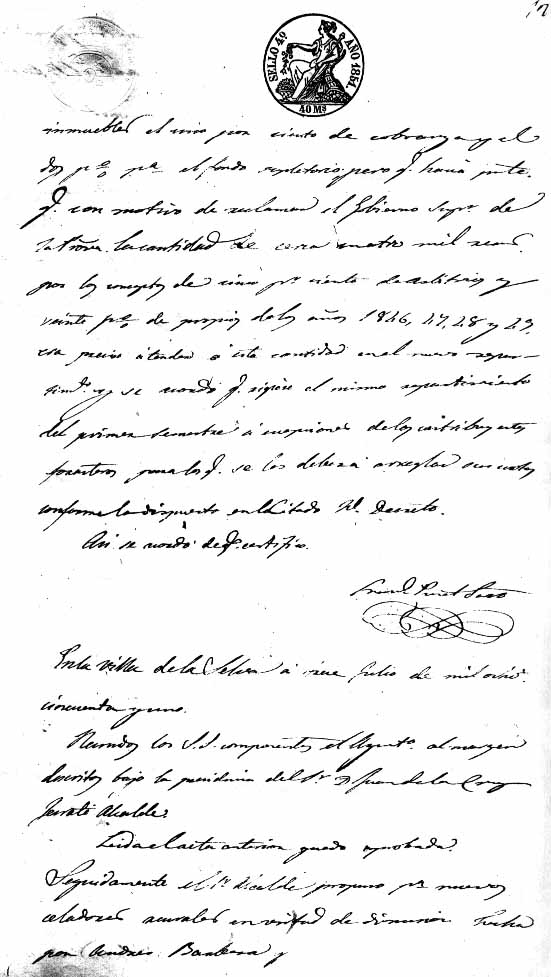 12
SELLO 4º AÑO 1851.
40 Mˢ
inmuebles el uno por ciento de cobranza y el
dos pº/o pª el fondo supletorio; pero q. havia
q. con motivo de reclamar el Gobierno Supr. de
la Prova. la cantidad de cuatro mil
por los conceptos de cinco pr ciento de arbitrios y
veinte pº/o de propios de los años 1846, 47, 48 y 49,
era preciso atender á esta cantidad en el nuevo repar-
timto. y se acordó q. rigiese el mismo repartimiento
del primer semestre á excepcion de los contribuyentes
forasteros para los q. se les deberá arreglar sus cuotas
conforme lo dispuesto en el citado Rl. Decreto.
Asi se acordó de q. certifico.
En la Villa de la Selva á Julio de mil ochos.
cincuenta y uno.
Reunidos los S.S. componentes el Ayunto. al margen
descritos bajo la presidencia del Sr. D. Juan de la Cruz
Alcalde.
Leida el acta anterior quedo aprobada.
Seguidamente el Sr. Alcalde propuso pr nuevos
celadores rurales en virtud de dimision hecha
por Andres Barbera y